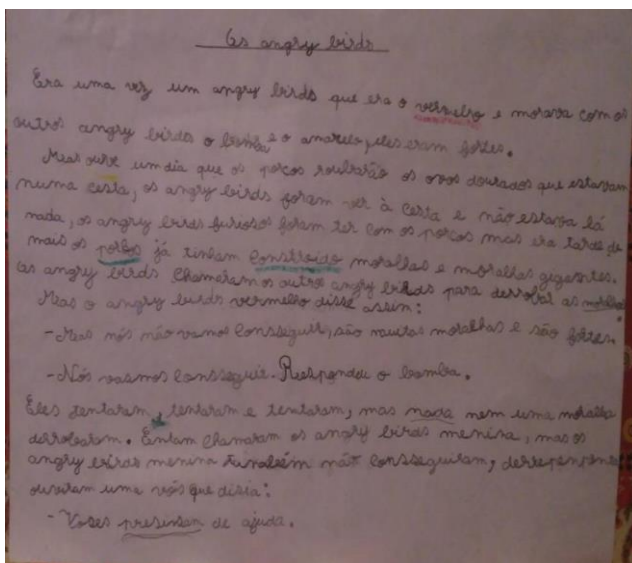 Os angry birds
Era uma vez um angry birds que era o vermelho e morava com os
outros angry birds o bomba e o amarelo eles eram fortes.
Mas ouve um dia que os porcos roubarão os ovos dourados que estavam
numa cesta, os angry birds foram ver à cesta e não estava lá
nada, os angry birds furiosos foram ter com os porcos mas era tarde de
mais os porcos já tinham construido moralhas e moralhas gigantes.
Os angry birds chamaram os outro angry birds para derrobar as moralhas
Mas o angry birds vermelho disse assim:
-Mas nós não vamos consseguir, são muitas moralhas e são fortes.
-Nós vasmos consseguir. Respondeu o bomba.
Eles tentaram, tentaram e tentaram, mas nada nem uma moralha
derrobaram. Entam chamaram os angry birds menina, mas os
angry birds menina também não consseguiram,
ouviram uma vós que disia:
-Voses presisan de ajuda.